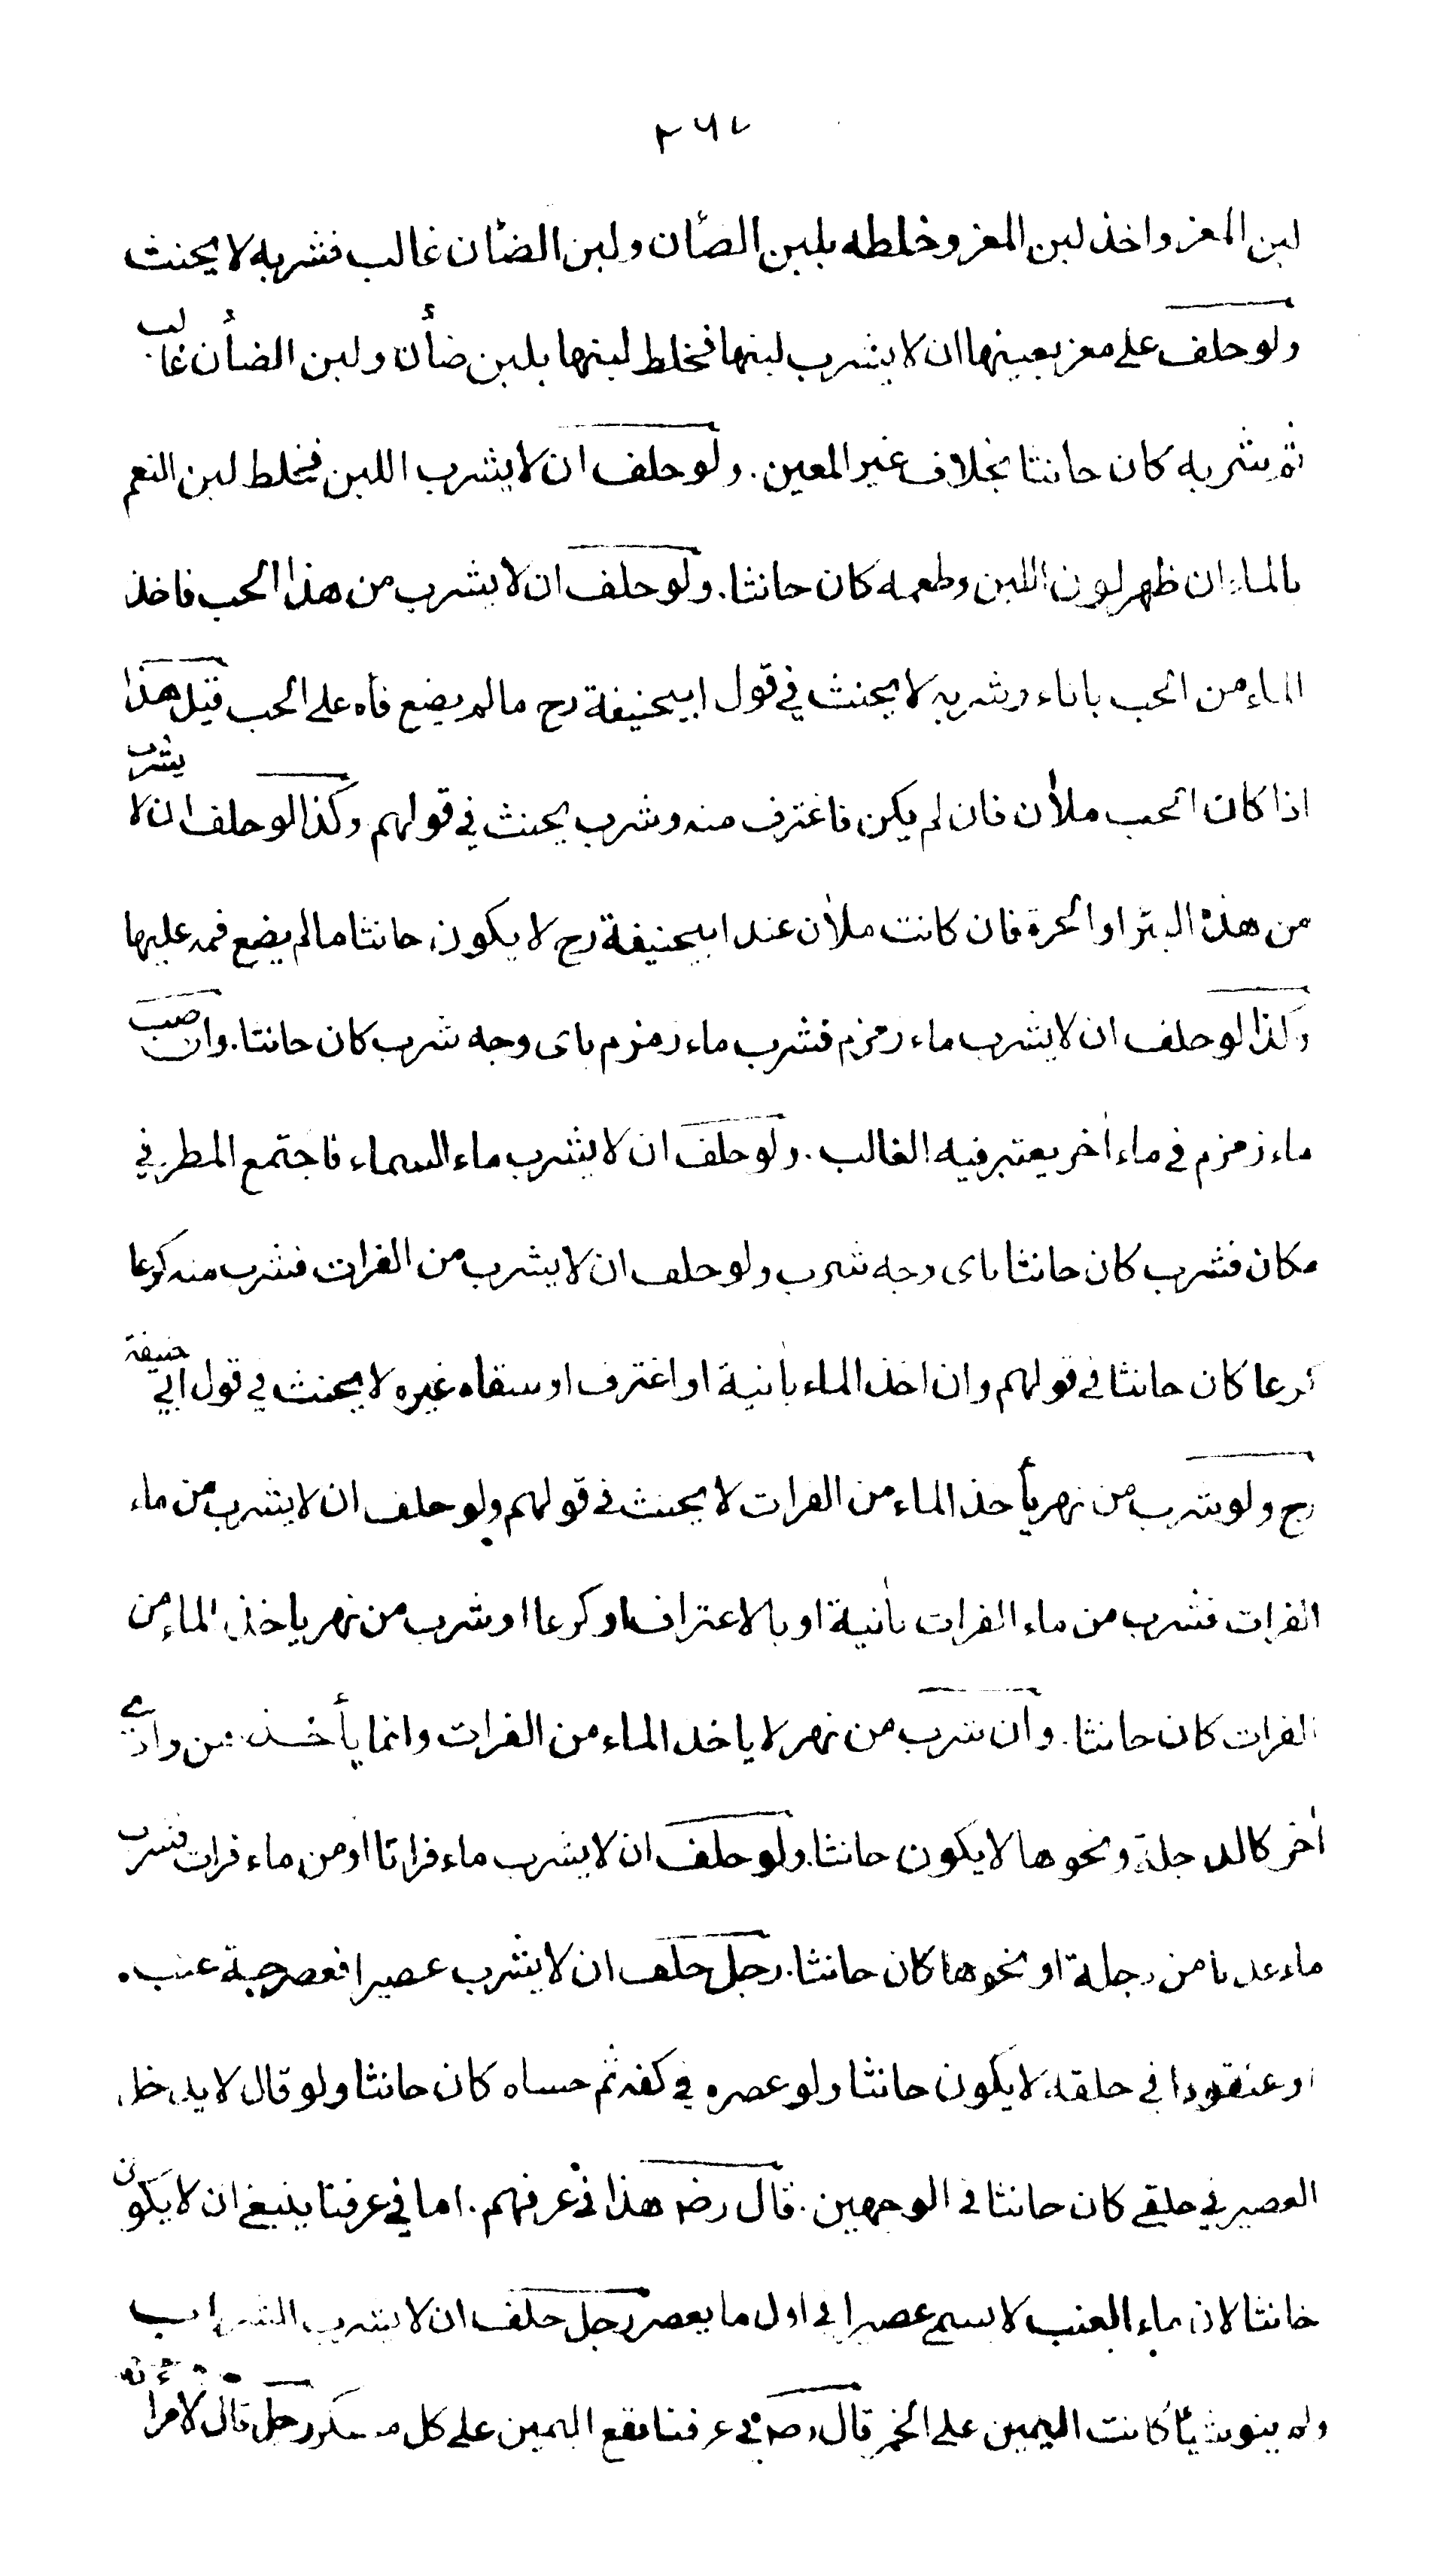 ٢٦٧
لبن المعز واخذ لبن المعز وخلطه بلبن الضأن ولبن الضأن غالب فشربه لا يحنث
ولو حلف على معز بعينها ان لا يشرب لبنها فخلط لبنها بلبن ضأن ولبن الضأن غالب
ثم شربه كان حانثا بخلاف غير المعين. ولو حلف ان لا يشرب اللبن فخلط لبن النعم
بالماء ان ظهر لون اللبن وطعمه كان حانثا. ولو حلف ان لا يشرب من هذا الحب فاخذ
الماء من الحب باناء وشربه لا يحنث في قول ابيحنيفة رح مالم يضع فاه على الحب قيل هذا
اذا كان الحب ملأن فان لم يكن فاغترف منه وشرب يحنث في قولهم وكذا لو حلف ان لا يشرب
من هذه البئر او الجرة فان كانت ملأن عند ابيحنيفة رح لا يكون حانثا مالم يضع فمه عليها
وكذا لو حلف ان لا يشرب ماء زمزم فشرب ماء زمزم باى وجه شرب كان حانثا. وان صب
ماء زمزم في ماء أخر يعتبر فيه الغالب. ولو حلف ان لا يشرب ماء السماء فاجتمع المطر في
مكان فشرب كان حانثا باى وجه شرب ولو حلف ان لا يشرب من الفرات فشرب منه كرعا
كرعا كان حانثا في قولهم وان اخذ الماء بأنية او اغترف او سقاه غيره لا يحنث في قول ابي حنيفة
رح ولو شرب من نهر يأخذ الماء من الفرات لا يحنث في قولهم ولو حلف ان لا يشرب من ماء
الفرات فشرب من ماء الفرات بأنية او بالاغتراف او كرعا او شرب من نهر ياخذ الماء من
الفرات كان حانثا. وان شرب من نهر لا ياخذ الماء من الفرات وانما يأخذ من وادي
أخر كالدجلة ونحوها لا يكون حانثا. ولو حلف ان لا يشرب ماء فراتا او من ماء فرات فشرب
ماء عذبا من دجلة او نحوها كان حانثا. رجل حلف ان لا يشرب عصيرا فعصر حبة عنب
او عنقودا في حلقه لا يكون حانثا ولو عصره في كفه ثم حساه كان حانثا ولو قال لا يدخل
العصير في حلقي كان حانثا في الوجهين. قال رضه هذا في عرفهم. اما في عرفنا ينبغي ان لا يكون
حانثا لان ماء العنب لا يسمى عصيرا في اول ما يعصر رجل حلف ان لا يشرب الشراب
ولم ينو شيأ كانت اليمين على الخمر قال رضه في عرفنا تقع اليمين على كل مسكر رجل قال لامرأته